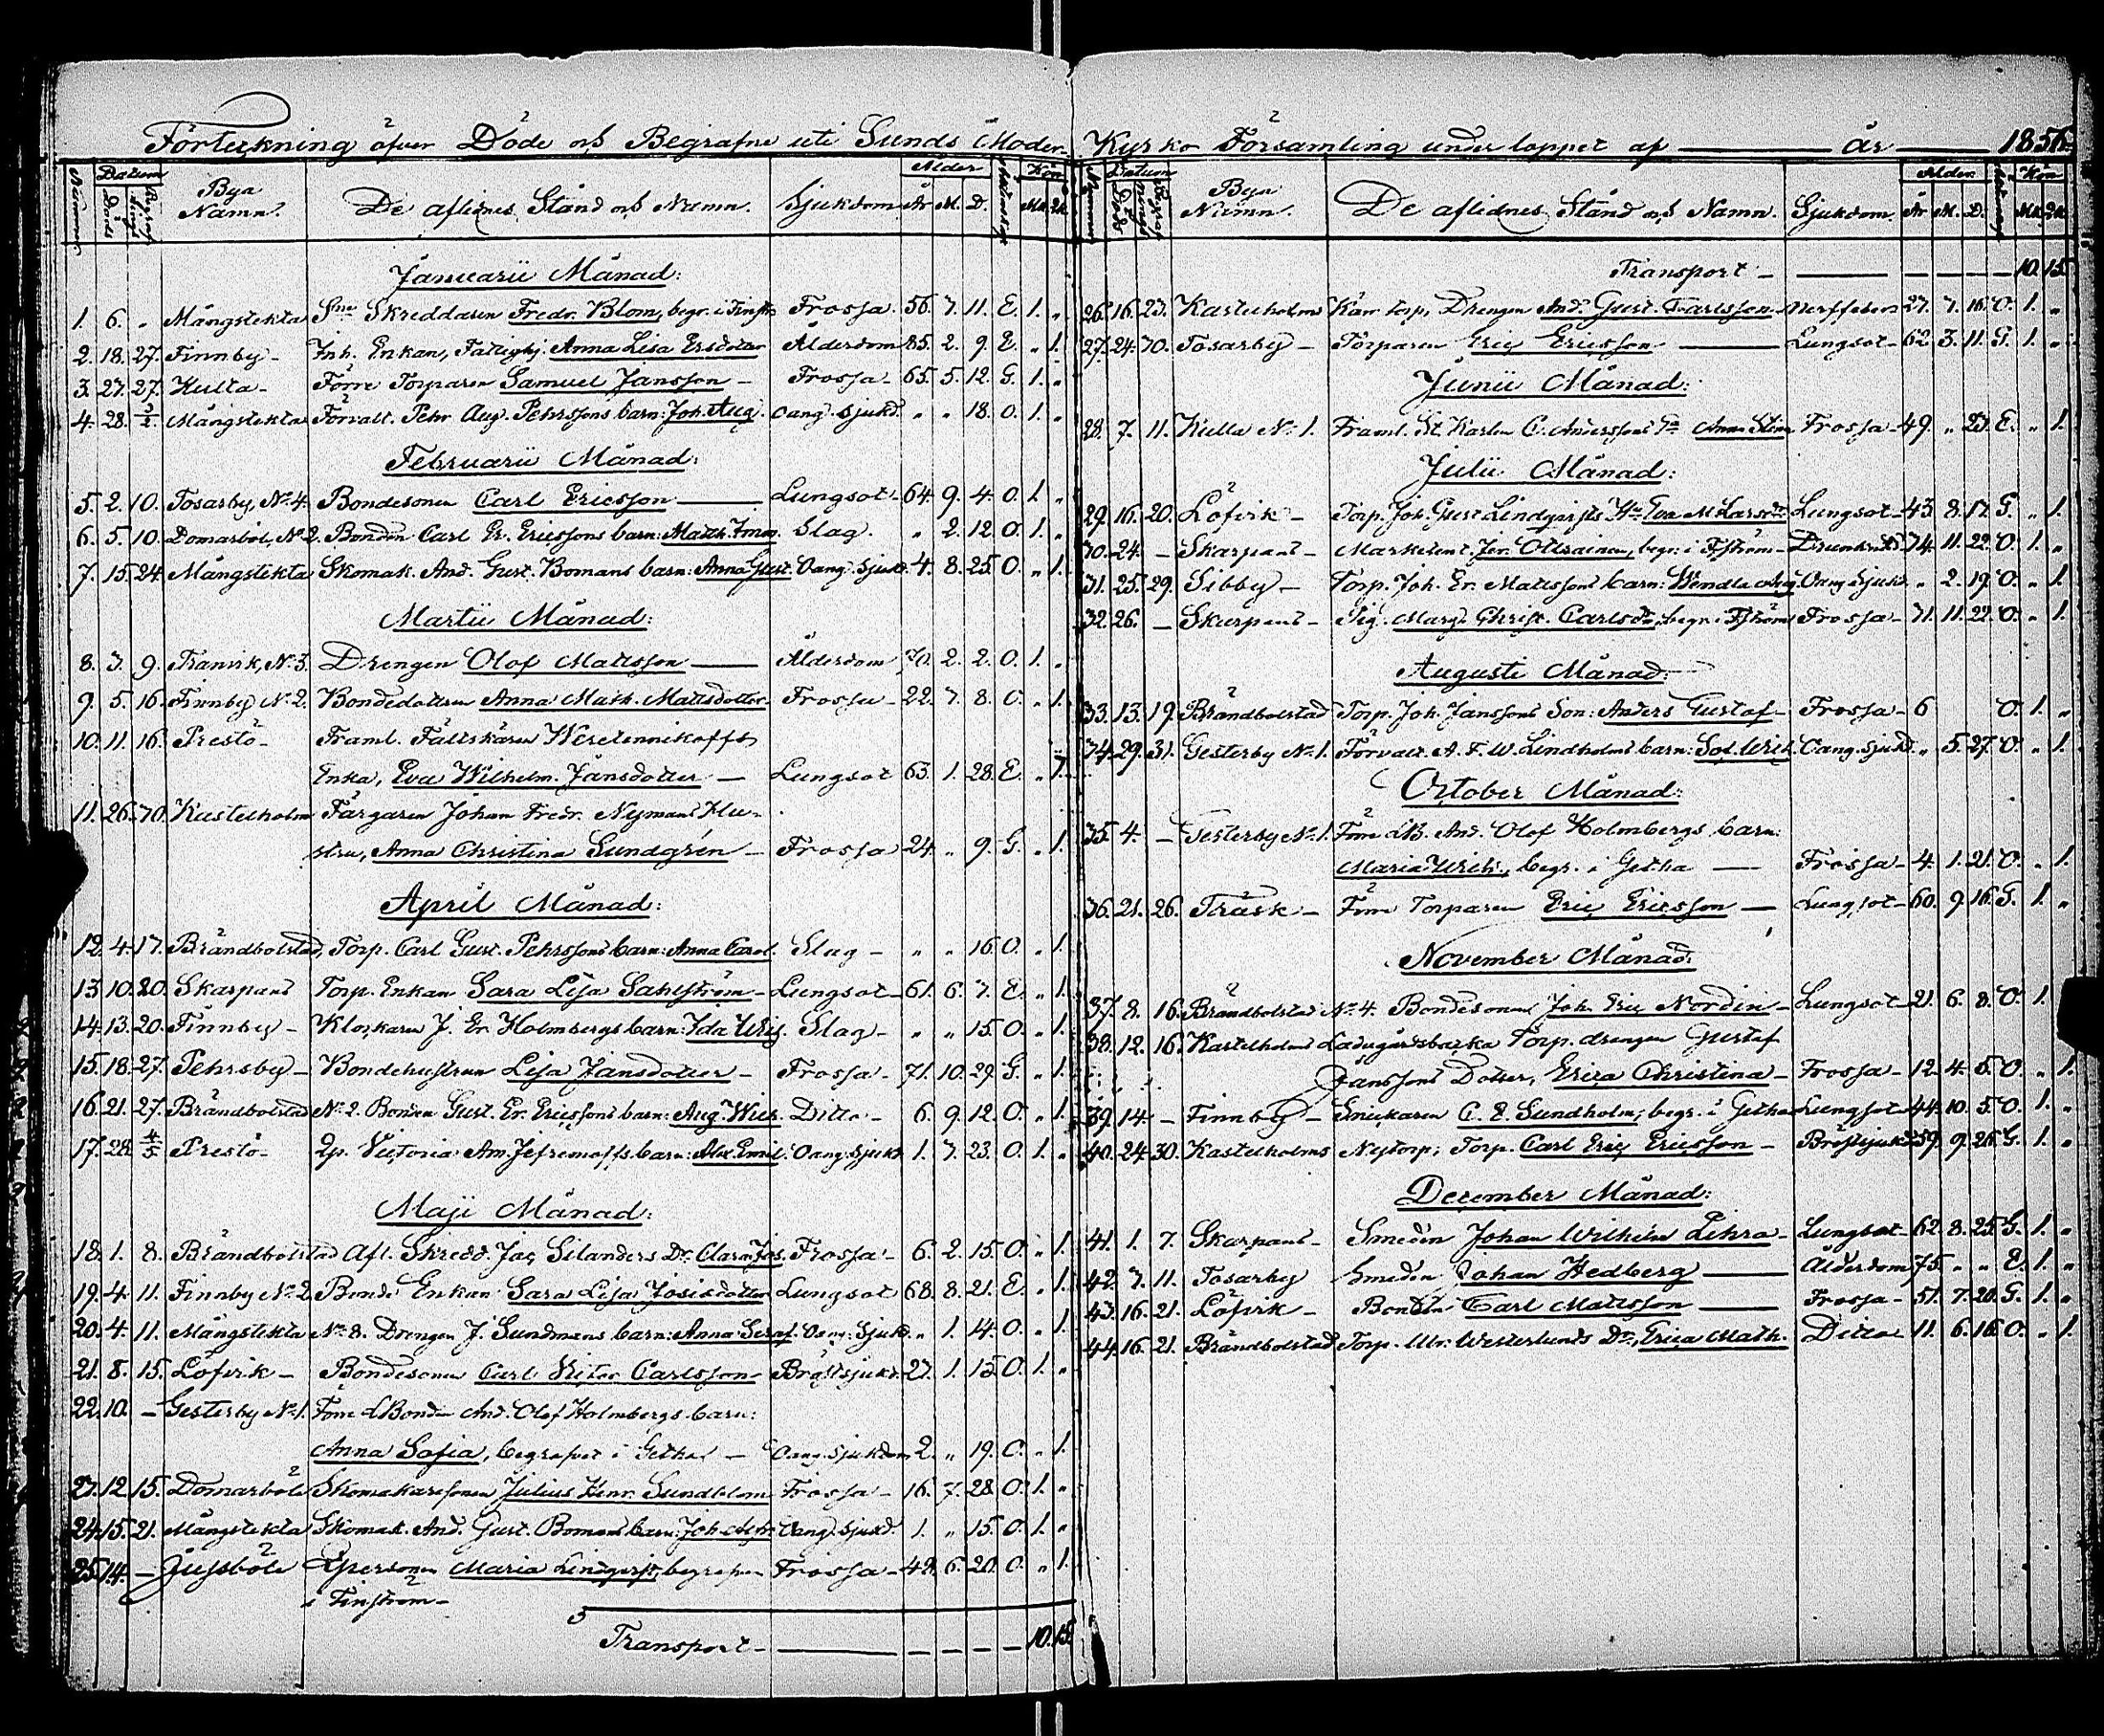 Förteckning öfver Döde och Begrafne uti Sunds Moder
Nummer Datum Döds Begrafnings Bya Namn. De aflidnes Stånd och Namn. Sjukdom Ålder År M. D. Kön Mk. Qk.
Januarii Månad:
1. 6. „ Mångstekta Skreddaren Fredr. Blom, begr. i Finstr. Frossa. 56. 7. 11. E. 1. „
2. 18. 27. Finnby – Inh. Enkan, Fattighj. Anna Lisa Ersdotter Ålderdom 85. 2. 9. E. „ 1.
3. 27. 27. Kulla – Förre Torparen Samuel Jansson – Frossa – 65. 5. 12. G. 1. „
4. 28. 3/2. Mångstekta Förvalt. Pehr Aug. Pehrssons barn: Joh. Aug. oang. sjukd. „ „ 18. O. 1. „
Februarii Månad:
5. 2. 10. Tosarby, No 4. Bondesonen Carl Ericsson – Lungsot – 64. 9. 4. O. 1. „
6. 5. 10. Domarböl, No 2. Bonden Carl Er. Ericssons barn: Math. Imm. Slag. „ 2. 12. O. 1. „
7. 15. 24. Mångstekta Skomak. And. Gust. Bomans barn: Anna Gust. Oang. Sjukd. 4. 8. 25. O. „ 1.
Martii Månad:
8. 3. 9. Tranvik, No 3. Drengen Olof Mattsson – Ålderdom 70. 2. 2. O. 1. „
9. 5. 16. Finnby No 2. Bondedottren Anna Math. Mattsdotter – Frossa – 22. 7. 8. O. „ 1.
10. 11. 16. Prestö – Framl. Fältskären Weretennikoffs
Enka, Eva Wilhelm. Jansdotter – Lungsot 63. 1. 28. E. „ 1.
11. 26. 30. Kastelholm Färgaren Johan Fredr. Nymans Hu-
stru, Anna Christina Sundgrén – Frossa 24. „ 9. G. „ 1.
April Månad:
12. 4. 17. Brändbolstad, Torp. Carl Gust. Pehrssons barn: Anna Carol. Slag – „ „ 16. O. „ 1.
13. 10. 20. Skarpans Torp. Enkan Sara Lisa Sahlström – Lungsot – 61. 6. 7. E. „ 1.
14. 13. 20. Finnby – Klockaren J. Er. Holmbergs barn: Ida Ulric. Slag – „ „ 15. O. „ 1.
15. 18. 27. Pehrsby – Bondehustrun Lisa Jansdotter – Frossa – 71. 10. 29. G. „ 1.
16. 21. 27. Brändbolstad No 2. Bonden Gust. Er. Ericssons barn: Aug. Wilh. Ditto – 6. 9. 12. O. „ 1.
17. 28. 4/5 Prestö – Qp. Victoria Am. Jefremoffs barn: Alex. Emil. Oang. Sjukd. 1. 7. 23. O. 1. „
Maji Månad:
18. 1. 8. Brändbolstad Afl. Skredd. Jac. Silanders Dr. Clara Jos. Frossa – 6. 2. 15. O. „ 1.
19. 4. 11. Finnby No 2. Bonde Enkan Sara Lisa Josefsdotter Lungsot 68. 8. 21. E. „ 1.
20. 4. 11. Mångstekta No 8. Drengen J. Sundmans barn: Anna Seraf. Oang. Sjukd. „ 1. 14. O. „ 1.
21. 8. 15. Löfvik – Bondesonen Carl Victor Carlsson – Bröstsjukd. 27. 1. 15. O. 1. „
22. 10. – Gesterby No 1. Förre LBonden And. Olof Holmbergs barn:
Anna Sofia, begrafvet i Getha – Oang. Sjukdom 2. „ 19. O. „ 1.
23. 12. 15. Domarböle Skomakaresonen Julius Henr. Sundblom Frossa – 16. 7. 28. O. 1. „
24. 15. 21. Mångstekta Skomak. And. Gust. Bomans barn: Joh. Oang. Sjukd. 1. „ 15. O. 1. „
25. 14. – Jussböle Qpersonen Maria Lindqvist, begrafven Frossa – 48. 6. 20. O. „ 1.
i Finström –
Transport – 10. 15.
Kyrko Församling under loppet af år 1856.
Nummer Datum Döds Begrafnings Bya Namn. De aflidnes Stånd och Namn. Sjukdom Ålder År M. D. Kön Mk. Qk.
Transport – 10. 15.
26. 16. 23. Kastelholms Kärr torp, Drengen And. Gust. Carlsson – Nerffeber 27. 7. 16. O. 1. „
27. 24. 30. Tosarby – Torparen Eric Ericsson – Lungsot – 62. 3. 11. G. 1. „
Junii Månad:
28. 7. 11. Kulla No 1. Framl. St. Karlen C. Anderssons Anna Stina Frossa – 49. „ 23. E. „ 1.
Julii Månad:
29. 16. 20. Löfvik – Torp. Joh. Gust. Lindqvists Hu Eva M. Larsdr. Lungsot – 43. 8. 17. G. „ 1.
30. 24. – Skarpans – Marketent. Jer. Ottrainen, begr. i Fström – Drunknad 74. 11. 22. O. 1. „
31. 25. 29. Sibby – Torp. Joh. Er. Mattssons barn: Wendla Oang. Sjukd. „ 2. 19. O. „ 1.
32. 26. – Skarpans – Pig. Marg. Christ. Carlsdr. begr. i Fström Frossa – 71. 11. 22. O. „ 1.
Augusti Månad:
33. 13. 19. Brändbolstad Torp. Joh. Janssons Son: Anders Gustaf – Frossa – 6 O. 1. „
34. 29. 31. Gesterby No 1. Förvalt. A. F. W. Lindholms barn: Sof. Ulrik. Oang. Sjukd. „ 5. 27. O. „ 1.
October Månad:
35. 4. – Gesterby No 1. Förre LB. And. Olof Holmbergs barn:
Maria Ulrik., begr. i Getha – Frossa – 4. 1. 21. O. „ 1.
36. 21. 26. Träsk – Förre Torparen Eric Ericsson – Lungsot – 60. 9. 16. G. 1. „
November Månad:
37. 8. 16. Brändbolstad No 4. Bondesonen Joh. Eric Nordin – Lungsot – 21. 6. 8. O. 1. „
38. 12. 16. Kastelholms Ladugårdsbacka Torp. drengen Gustaf
Janssons Dotter, Erica Christina – Frossa – 12. 4. 5. O. „ 1.
39. 14. – Finnby – Snickaren C. E. Sundholm, begr. i Getha Lungsot 44. 10. 5. O. 1. „
40. 24. 30. Kastelholms Nytorp, Torp. Carl Eric Ericsson – Bröstsjukd. 59. 9. 26. G. 1. „
December Månad:
41. 1. 7. Skarpans – Smeden Johan Wilhelm Lehra – Lungsot – 62. 8. 25. G. 1. „
42. 3. 11. Tosarby Smeden Johan Hedberg – Ålderdom 75. „ „ E. 1. „
43. 16. 21. Löfvik – Bonden Carl Mattsson – Frossa – 51. 7. 20. G. 1. „
44. 16. 21. Brändbolstad Torp. Ulr. Westerlunds Dr., Erica Math. Ditto 11. 6. 16. O. „ 1.